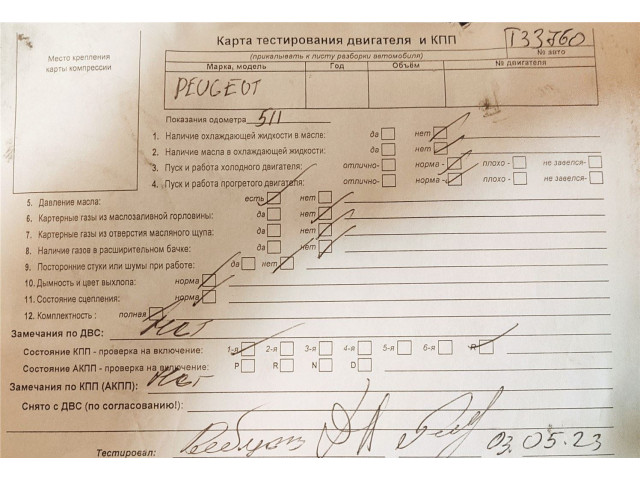 Карта тестирования двигателя и КПП T33760
(прикалывать к листу разборки автомобиля) № авто
Место крепления
карты компрессии
Марка, модель Год Объём № двигателя
PEUGEOT
Показания одометра 511
1. Наличие охлаждающей жидкости в масле: да нет
2. Наличие масла в охлаждающей жидкости: да нет
3. Пуск и работа холодного двигателя: отлично- норма - плохо - не завелся-
4. Пуск и работа прогретого двигателя: отлично- норма - плохо - не завелся-
5. Давление масла: есть нет
6. Картерные газы из маслозаливной горловины: да нет
7. Картерные газы из отверстия масляного щупа: да нет
8. Наличие газов в расширительном бачке: да нет
9. Посторонние стуки или шумы при работе: да нет
10. Дымность и цвет выхлопа: норма
11. Состояние сцепления: норма
12. Комплектность : полная
Замечания по ДВС: Нет
Состояние КПП - проверка на включение: 1-я 2-я 3-я 4-я 5-я 6-я R
Состояние АКПП - проверка на включение: P R N D
Замечания по КПП (АКПП): Нет
Снято с ДВС (по согласованию!):
Тестировал: 03.05.23